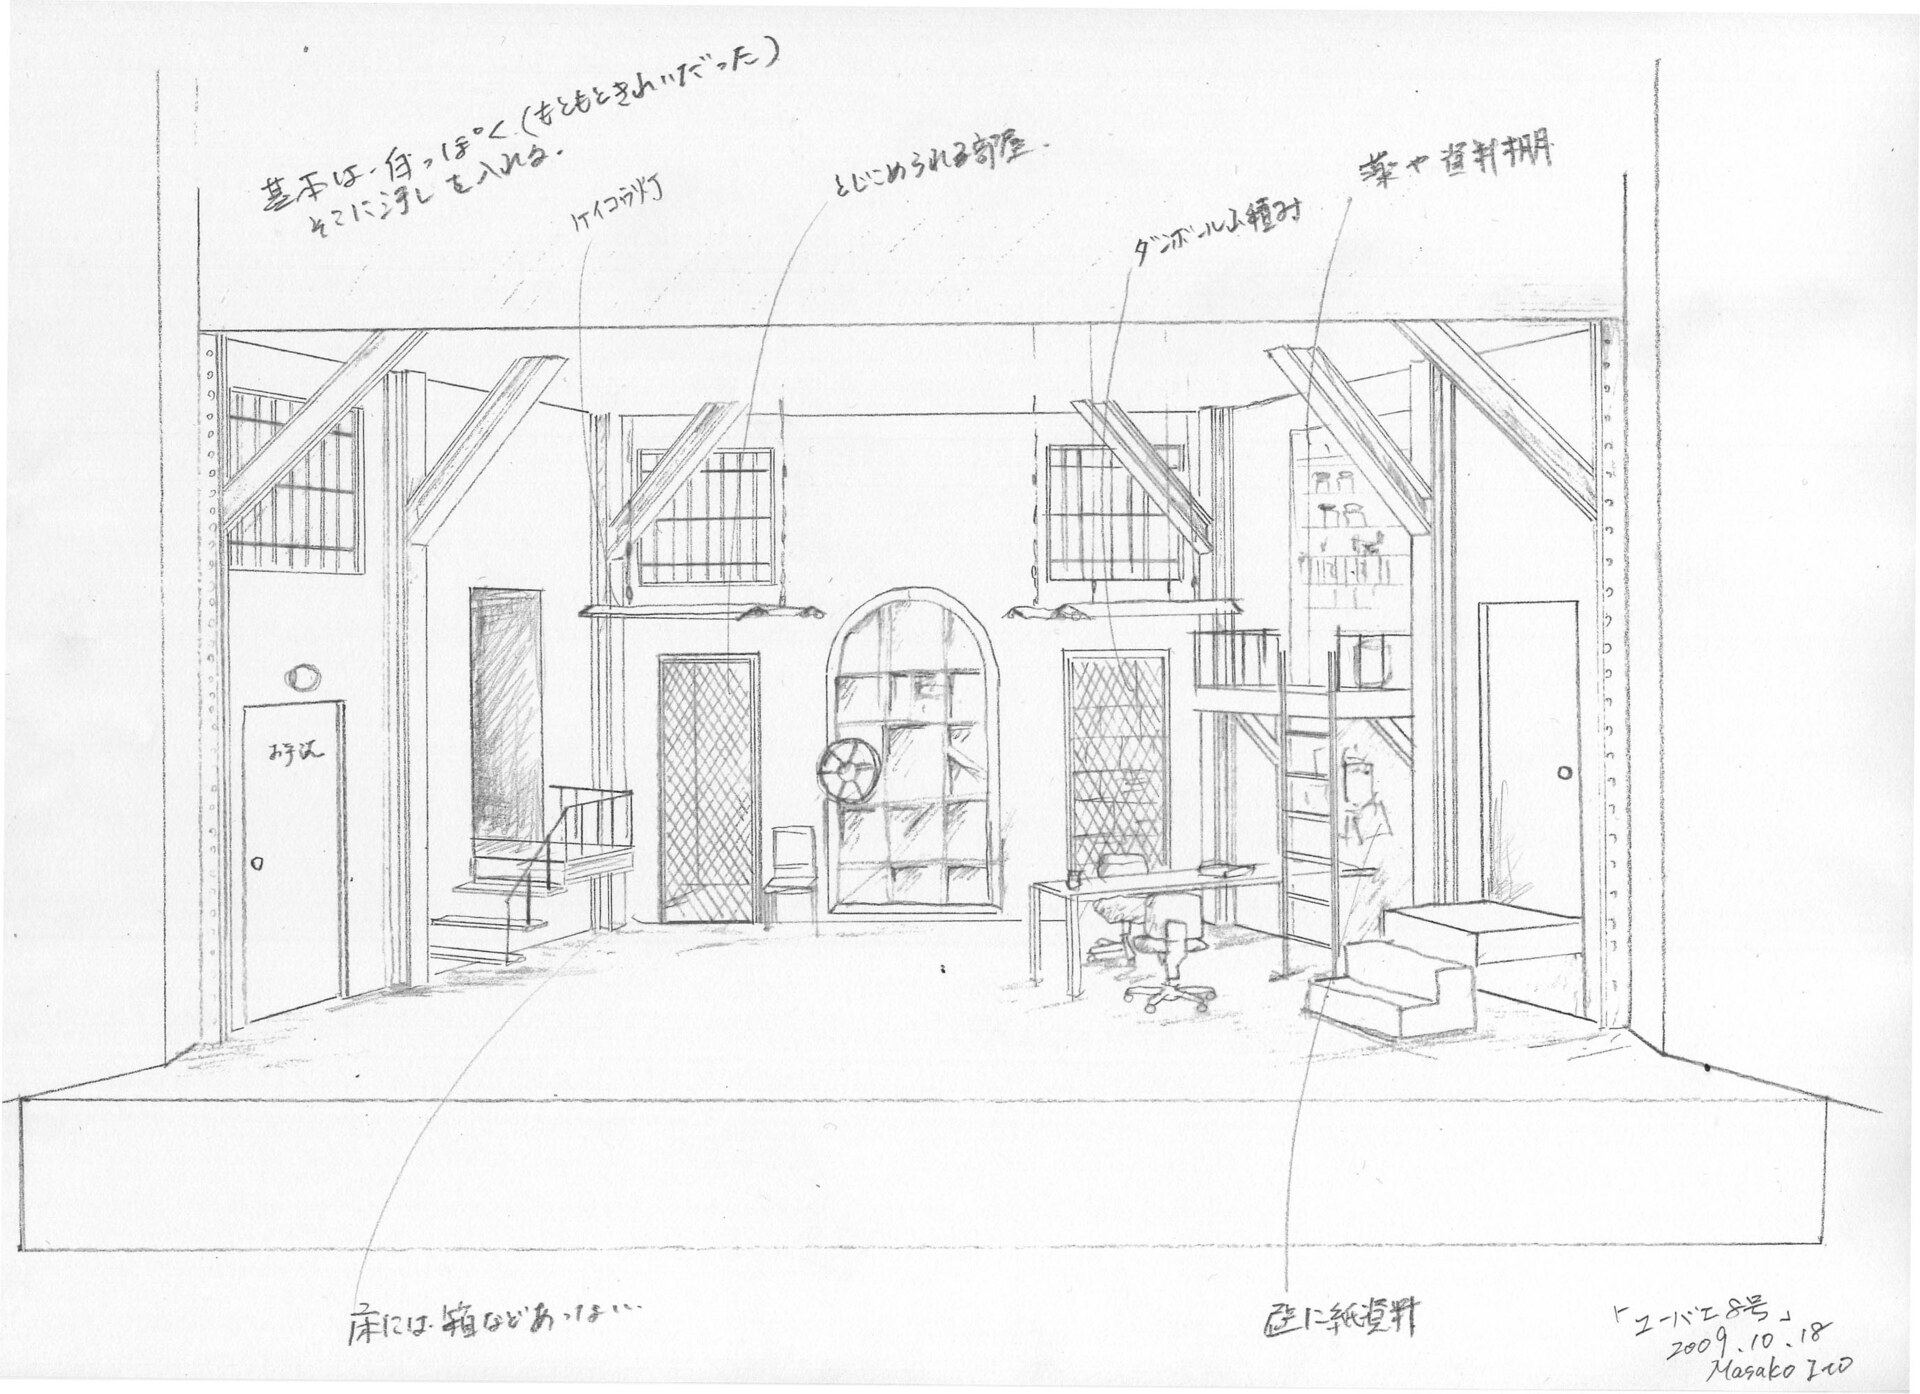 基本は、白っぽく.(もともときれいだった)
そこに汚しを入れる.
ケイコウ灯
とじこめられる部屋.
ダンボール山積み
薬や資料棚
お手洗
床には.箱など
壁に紙資料
「ユーバエ8号」
2009.10.18
Masako Ito